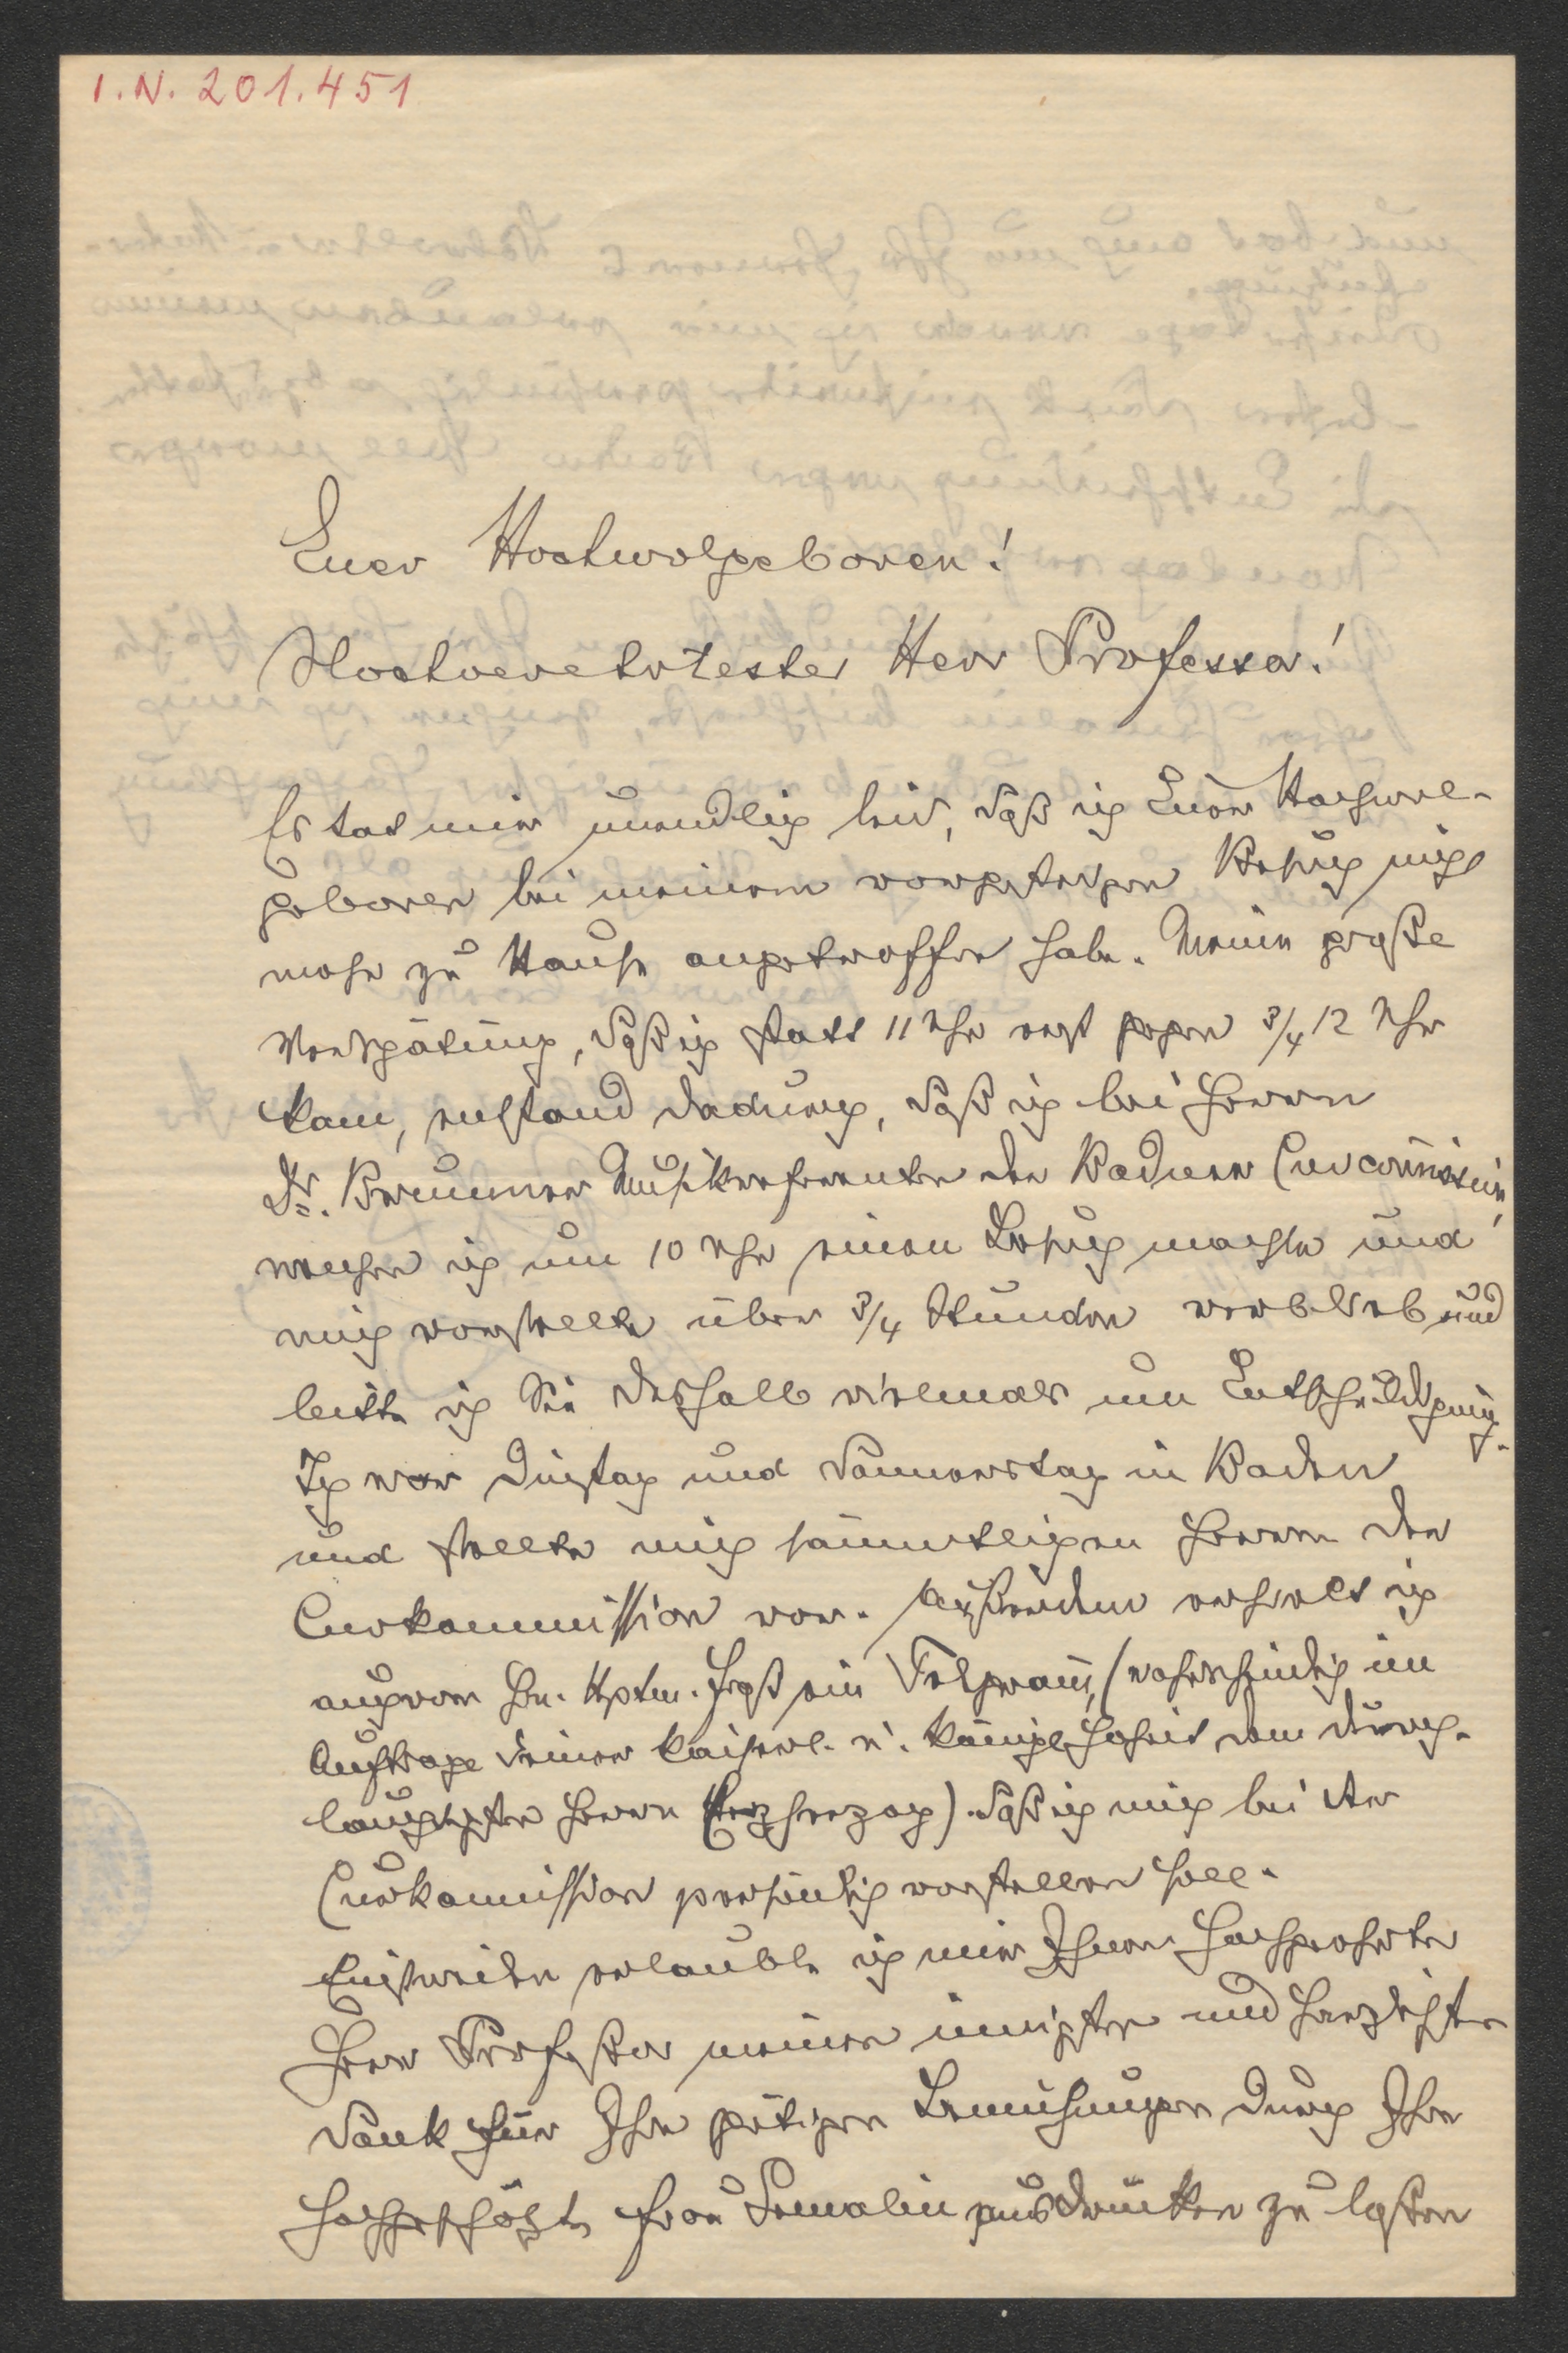 I.N. 201.451
Euer Hochwolgeboren!
Hochverehrtester Herr Professor!
Es tat mir unendlich leid, daß ich Euer Hochwol-
geboren bei meinem vorgestrigen Besuch nicht
mehr zu Hause angetroffen habe. Meine große
Verspätung, daß ich statt 11 Uhr erst gegen 3/4 12 Uhr
kam, entstand dadurch, daß ich bei Herrn
Dr. Brunner Musikreferenten der Badener Curcommission,
welchen ich um 10 Uhr einen Besuch machte und
mich vorstellte über 3/4 Stunden verblieb und
bitte ich Sie deshalb vielmals um Entschuldigung.
Ich war Dinstag und Donnerstag in Baden
und stellte mich sämmtlichen Herren der
Curkommission vor. Außerdem erhielt ich
auch vom Hn. Hptm. ein Telgram, (wahrscheinlich im
Auftrage Seiner kaiserl. u. königl. Hoheit dem durch-
lauchtigsten Herrn Erzherzog). daß ich mich bei der
Curkommission persönlich vorstellen soll.
Einstweilen erlaubte ich mir Ihnen hochgeehrter
Herr Professor meinen innigsten und herzlichsten
Dank für Ihre gütigen Bemühungen durch Ihre
hochgeschätzte Frau Gemalin ausdrücken zu lassen